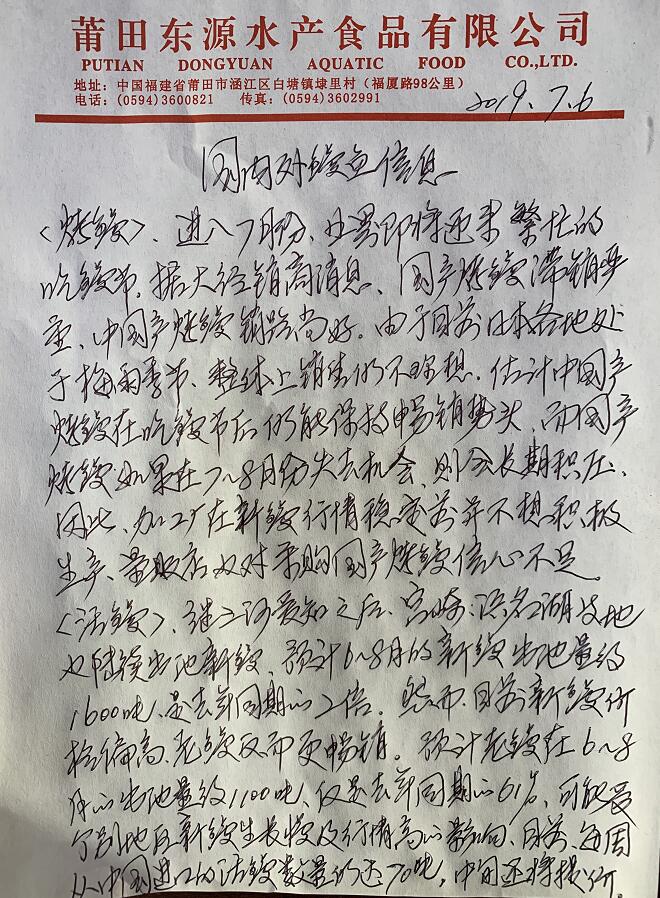 莆田东源水产食品有限公司
PUTIAN DONGYUAN AQUATIC FOOD CO.,LTD.
地址：中国福建省莆田市涵江区白塘镇埭里村（福厦路98公里）
电话：(0594)3600821 传真：(0594)3602991
2019.7.6
国内外鳗鱼信息
〈烤鳗〉、进入7月份、也算即将迎来繁忙的
吃鳗节，据大经销商消息、国产烤鳗滞销严
重、中国产烤鳗销路尚好。由于目前日本各地处
于梅雨季节、整体上销售仍不理想，估计中国产
烤鳗在吃鳗节后仍能保持畅销势头，而国产
烤鳗如果在7~8月份失去机会、则会长期积压、
因此、加工厂在新鳗行情稳定前并不想积极
生产、量贩店又对采购国产烤鳗信心不足。
〈活鳗〉、继三河爱知之后、宫崎、浜名湖等地
也陆续出池新鳗、预计6~8月的新鳗出池量约
1600吨、是去年同期的2倍。然而、目前新鳗价
格偏高、老鳗反而更畅销。预计老鳗在6~8
月的出池量约1100吨、仅是去年同期的61%、可能受
个别地区新鳗生长慢及行情高的影响、目前、每周
从中国进口的活鳗数量约达70吨，中间还将提价。